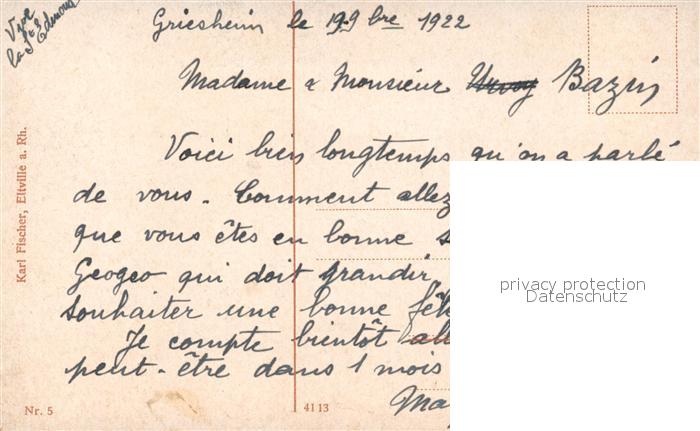 Vive
la Ste
Griesheim le 19 9bre 1922
Madame & Monsieur Bazin
Voici bien longtemps qu'on a parlé
de vous. Comment allez
que vous êtes en bonne s
Geogeo qui doit grandir,
souhaiter une bonne fêt
Je compte bientôt all
peut-être dans 1 mois
Ma
Karl Fischer, Eltville a. Rh.
Nr. 5
41 13
privacy protection
Datenschutz